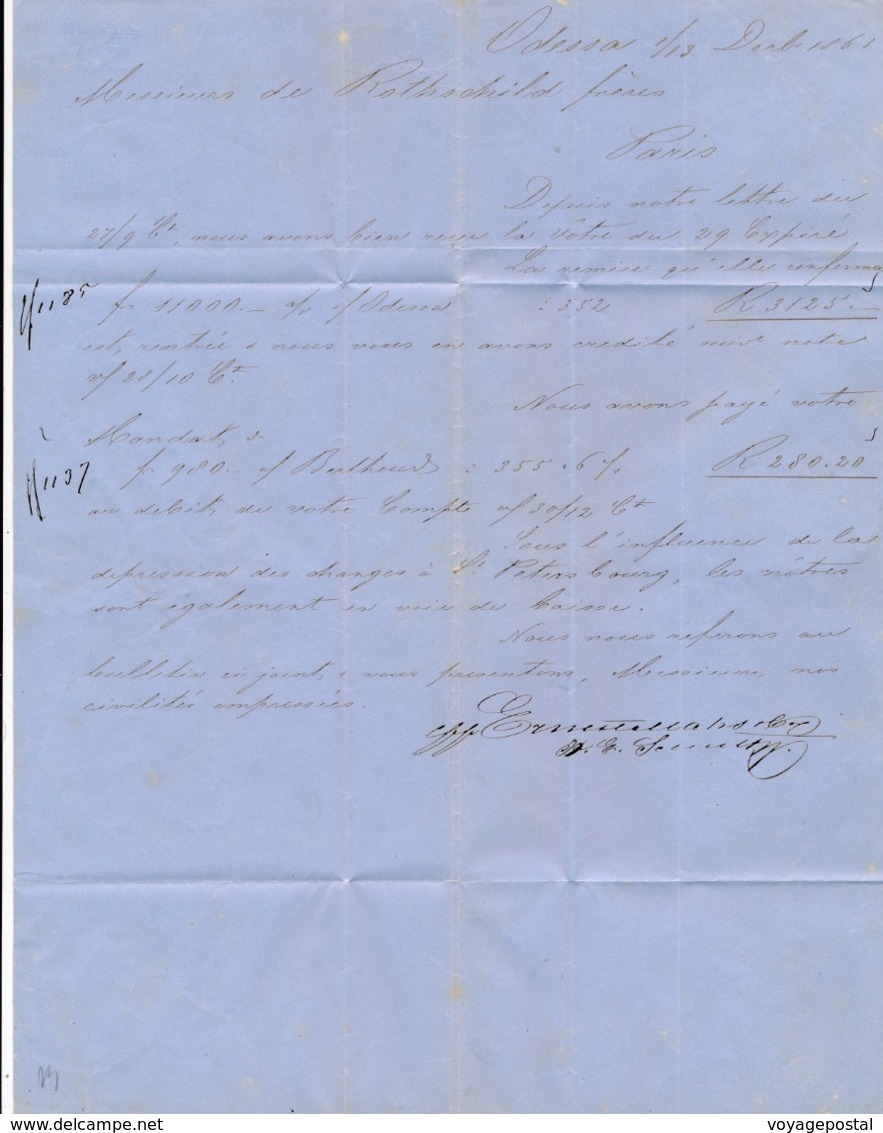 Odessa 1/13 Decb. 1861
Messieurs de Rothschild frères
Paris
Depuis notre lettre du
27/9 Ct, nous avons bien reçu la vôtre du 29 Expiré
La remise qu'elle renferma
fr 11000.— s/ Odessa : 352 R 3125.—
est rentrée & nous vous en avons credité suivt note
v/ 28/10 Ct.
Nous avons payé votre
Mandat, de
fr 980.— o/ Berthoud : 355.6 % R 280.20
au debit, de votre Compte v/ 30/12 Ct
Sous l'influence de la
depression des changes à St. Petersbourg, les nôtres
sont également en voie de baisse.
Nous nous referons au
bulletin ci joint, & vous presentons, Messieurs, nos
civilités empressées.
ppp Ernest Mahs & Co
voyagepostal